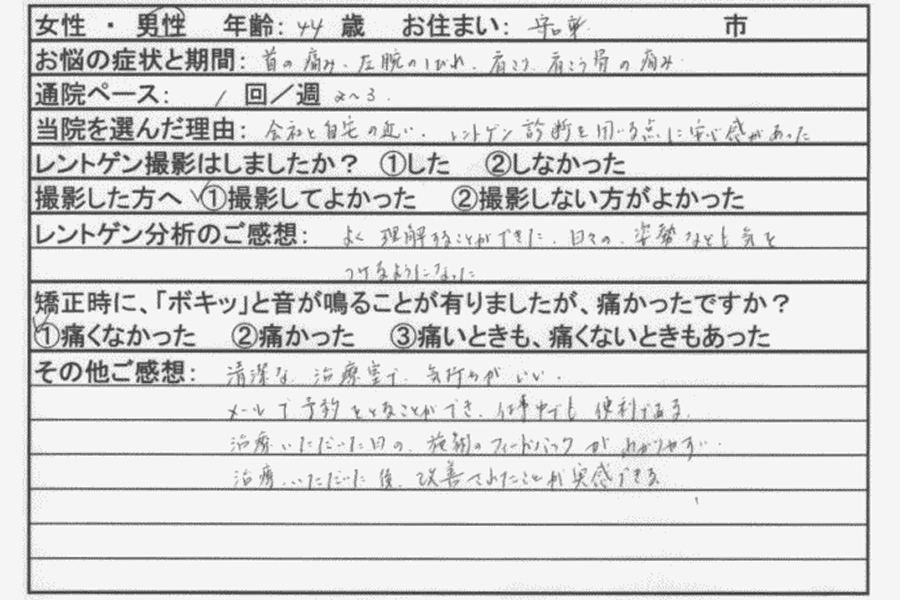 女性 ・ 男性 年齢: 44 歳 お住まい: 市
お悩の症状と期間: 首の痛み、左腕のしびれ、肩こり、肩こう骨の痛み
通院ペース: 1 回／週 2〜3.
当院を選んだ理由: 会社と自宅の近い. レントゲン診断を用いる点に安心感があった
レントゲン撮影はしましたか？ ①した ②しなかった
撮影した方へ ✓①撮影してよかった ②撮影しない方がよかった
レントゲン分析のご感想: よく理解することができた. 日々の、姿勢なども気を
つけるようになった
矯正時に、「ボキッ」と音が鳴ることが有りましたが、痛かったですか？
①痛くなかった ②痛かった ③痛いときも、痛くないときもあった
その他ご感想: 清潔な治療室で、気持ちがいい.
メールで予約をとることができ、仕事中でも便利である.
治療いただいた日の、施術のフィードバックがわかりやすい.
治療いただいた後、改善されたことが実感できる